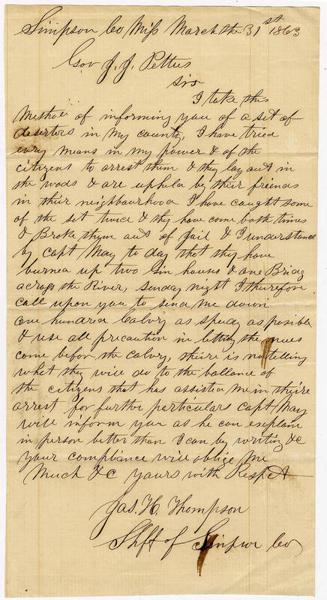 Simpson Co Miss March the 31st 1863
Gov J. J. Pettus
Sir
I take this
method of informing you of a set of
deserters in my county, I have tried
evry means in my power & of the
citizens to arrest them & they lay out in
the woods & are upheld by their friends
in their neighbourhood I have caught some
of the set twice & they have come both times
& Broke thym out of jail & I understand
by capt May to day that they have
burned up two Gin houses & one Bridg
across the River, Sunday night I therefore
call upon you to send me down
one hundred Calvry as speedy as posible
& use all precaution in letting the nues
come before the calvry, theire is no telling
what they will do to the ballance of
the citizens that has assisted me in theire
arrest for further particulars capt May
will inform you as he can explain
in person better than I can by writing &c
your compliance will oblige me
Much &c yours with Respet
Jas. H. Thompson
Shff of Simpson Co